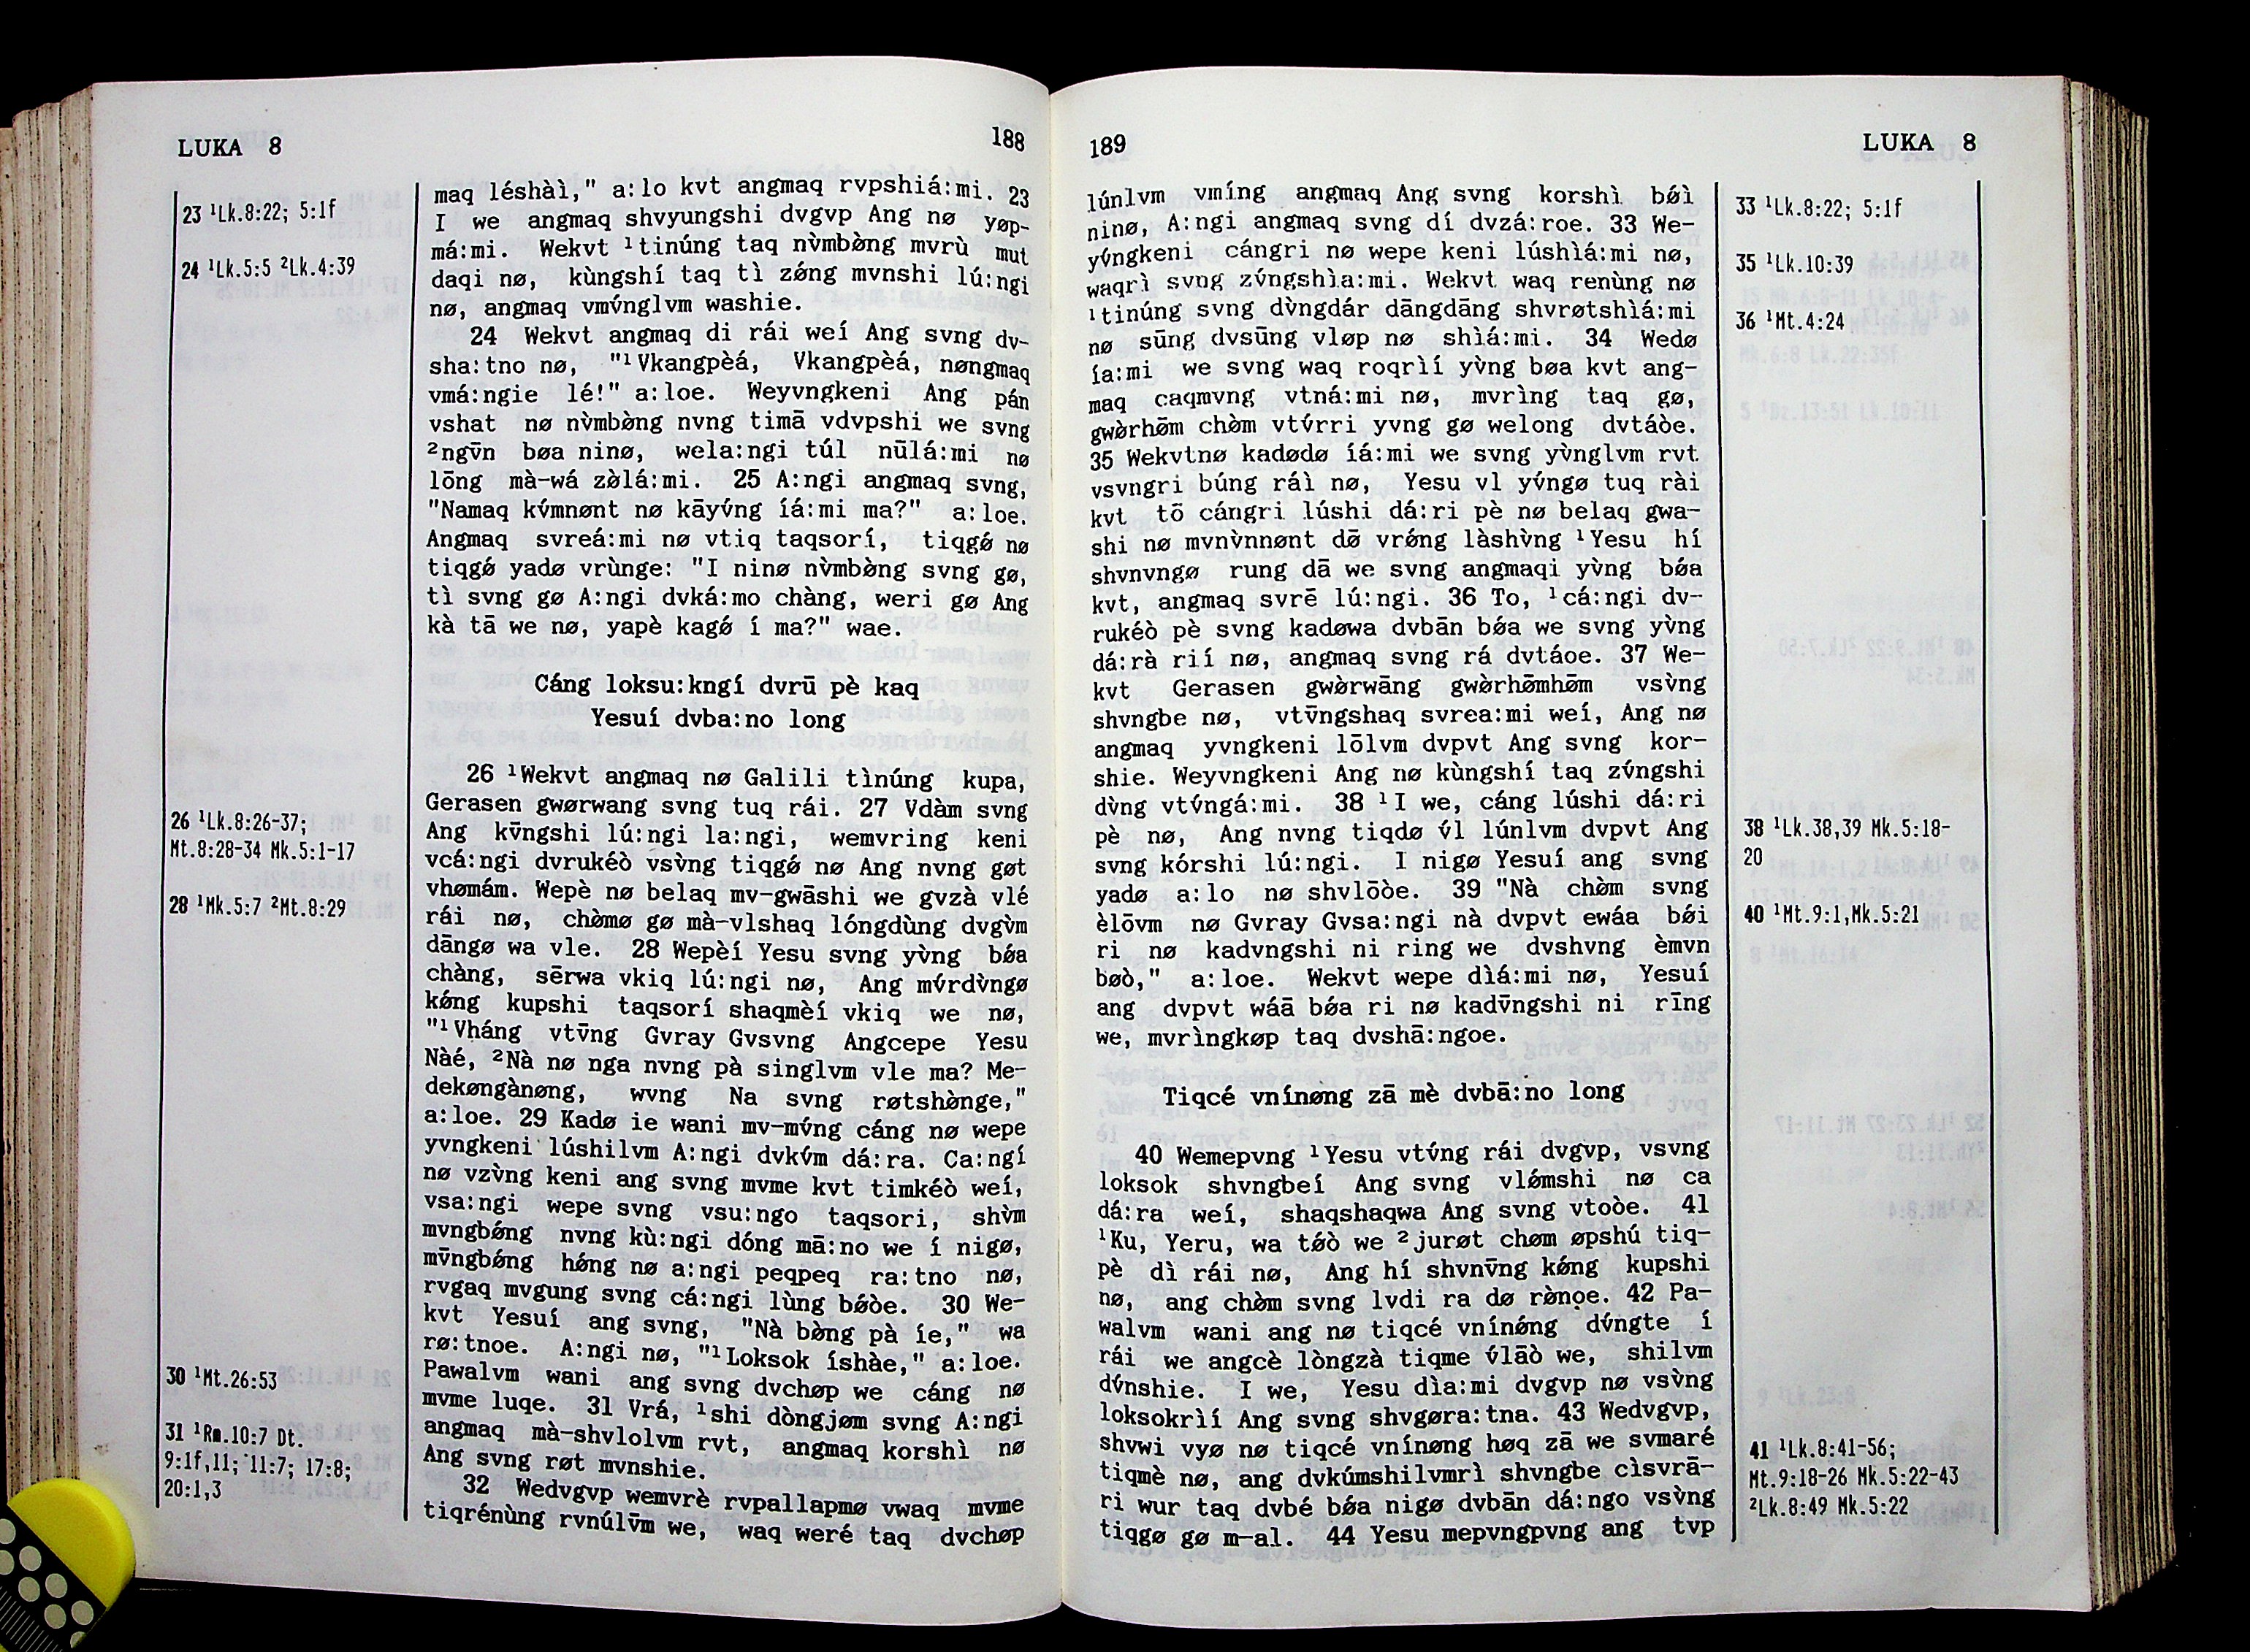 LUKA 8
188
23 ¹Lk.8:22; 5:1f
24 ¹Lk.5:5 ²Lk.4:39
26 ¹Lk.8:26-37;
Mt.8:28-34 Mk.5:1-17
28 ¹Mk.5:7 ²Mt.8:29
30 ¹Mt.26:53
31 ¹Rm.10:7 Dt.
9:1f,11; 11:7; 17:8;
20:1,3
maq léshàì," a:lo kvt angmaq rvpshiá:mi. 23
I we angmaq shvyungshi dvgvp Ang nø yøp-
má:mi. Wekvt ¹tinúng taq nv̀mbø̀ng mvrù mut
daqi nø, kùngshí taq tì zǿng mvnshi lú:ngi
nø, angmaq vmv́nglvm washie.
24 Wekvt angmaq di rái weí Ang svng dv-
sha:tno nø, "¹Vkangpèá, Vkangpèá, nøngmaq
vmá:ngie lé!" a:loe. Weyvngkeni Ang pán
vshat nø nv̀mbø̀ng nvng timā vdvpshi we svng
²ngv̄n bøa ninø, wela:ngi túl nūlá:mi nø
lōng mà-wá zø̀lá:mi. 25 A:ngi angmaq svng,
"Namaq kv́mnønt nø kāyv́ng íá:mi ma?" a:loe.
Angmaq svreá:mi nø vtiq taqsorí, tiqgǿ nø
tiqgǿ yadø vrùnge: "I ninø nv̀mbø̀ng svng gø,
tì svng gø A:ngi dvká:mo chàng, weri gø Ang
kà tā we nø, yapè kagǿ í ma?" wae.
Cáng loksu:kngí dvrū pè kaq
Yesuí dvba:no long
26 ¹Wekvt angmaq nø Galili tìnúng kupa,
Gerasen gwørwang svng tuq rái. 27 Vdàm svng
Ang kv̄ngshi lú:ngi la:ngi, wemvring keni
vcá:ngi dvrukéò vsv̀ng tiqgǿ nø Ang nvng gøt
vhømám. Wepè nø belaq mv-gwāshi we gvzà vlé
rái nø, chø̀mø gø mà-vlshaq lóngdùng dvgv̀m
dāngø wa vle. 28 Wepèí Yesu svng yv̀ng bǿa
chàng, sērwa vkiq lú:ngi nø, Ang mv́rdv̀ngø
kǿng kupshi taqsorí shaqmèí vkiq we nø,
"¹Vháng vtv̄ng Gvray Gvsvng Angcepe Yesu
Nàé, ²Nà nø nga nvng pà singlvm vle ma? Me-
dekøngànøng, wvng Na svng røtshø̀nge,"
a:loe. 29 Kadø ie wani mv-mv́ng cáng nø wepe
yvngkeni lúshilvm A:ngi dvkv́m dá:ra. Ca:ngí
nø vzv̀ng keni ang svng mvme kvt timkéò weí,
vsa:ngi wepe svng vsu:ngo taqsori, shv̀m
mvngbǿng nvng kù:ngi dóng mā:no we í nigø,
mv̄ngbǿng hǿng nø a:ngi peqpeq ra:tno nø,
rvgaq mvgung svng cá:ngi lùng bǿòe. 30 We-
kvt Yesuí ang svng, "Nà bø̀ng pà íe," wa
rø:tnoe. A:ngi nø, "¹Loksok íshàe," a:loe.
Pawalvm wani ang svng dvchøp we cáng nø
mvme luqe. 31 Vrá, ¹shi dòngjøm svng A:ngi
angmaq mà-shvlolvm rvt, angmaq korshì nø
Ang svng røt mvnshie.
32 Wedvgvp wemvrè rvpallapmø vwaq mvme
tiqrénùng rvnúlv̄m we, waq weré taq dvchøp
189
LUKA 8
lúnlvm vmíng angmaq Ang svng korshì bǿì
ninø, A:ngi angmaq svng dí dvzá:roe. 33 We-
yv́ngkeni cángri nø wepe keni lúshìá:mi nø,
waqrì svng zv́ngshìa:mi. Wekvt waq renùng nø
¹tinúng svng dv̀ngdár dāngdāng shvrøtshìá:mi
nø sūng dvsūng vløp nø shìá:mi. 34 Wedø
ía:mi we svng waq roqrìí yv̀ng bøa kvt ang-
maq caqmvng vtná:mi nø, mvrìng taq gø,
gwø̀rhø̄m chø̀m vtv́rri yvng gø welong dvtáòe.
35 Wekvtnø kadødø íá:mi we svng yv̀nglvm rvt
vsvngri búng ráì nø, Yesu vl yv́ngø tuq rài
kvt tō cángri lúshi dá:ri pè nø belaq gwa-
shi nø mvnv̀nnønt dø̄ vrǿng làshv̀ng ¹Yesu hí
shvnvngø rung dā we svng angmaqi yv̀ng bǿa
kvt, angmaq svrē lú:ngi. 36 To, ¹cá:ngi dv-
rukéò pè svng kadøwa dvbān bǿa we svng yv̀ng
dá:rà rií nø, angmaq svng rá dvtáoe. 37 We-
kvt Gerasen gwø̀rwāng gwø̀rhø̄mhø̄m vsv̀ng
shvngbe nø, vtv̄ngshaq svrea:mi weí, Ang nø
angmaq yvngkeni lōlvm dvpvt Ang svng kor-
shie. Weyvngkeni Ang nø kùngshí taq zv́ngshi
dv̀ng vtv́ngá:mi. 38 ¹I we, cáng lúshi dá:ri
pè nø, Ang nvng tiqdø v́l lúnlvm dvpvt Ang
svng kórshi lú:ngi. I nigø Yesuí ang svng
yadø a:lo nø shvlōòe. 39 "Nà chø̀m svng
èlōvm nø Gvray Gvsa:ngi nà dvpvt ewáa bǿi
ri nø kadvngshi ni ring we dvshvng èmvn
bøò," a:loe. Wekvt wepe dìá:mi nø, Yesuí
ang dvpvt wáā bǿa ri nø kadv̄ngshi ni rīng
we, mvrìngkøp taq dvshā:ngoe.
Tiqcé vnínøng zā mè dvbā:no long
40 Wemepvng ¹Yesu vtv́ng rái dvgvp, vsvng
loksok shvngbeí Ang svng vlǿmshi nø ca
dá:ra weí, shaqshaqwa Ang svng vtoòe. 41
¹Ku, Yeru, wa tǿò we ²jurøt chøm øpshú tiq-
pè dì rái nø, Ang hí shvnv̄ng kǿng kupshi
nø, ang chø̀m svng lvdi ra dø rø̀nọe. 42 Pa-
walvm wani ang nø tiqcé vnínǿng dv́ngte í
rái we angcè lòngzà tiqme v́lāò we, shilvm
dv́nshie. I we, Yesu dìa:mi dvgvp nø vsv̀ng
loksokrìí Ang svng shvgøra:tna. 43 Wedvgvp,
shvwi vyø nø tiqcé vnínøng høq zā we svmaré
tiqmè nø, ang dvkúmshilvmrì shvngbe cìsvrā-
ri wur taq dvbé bǿa nigø dvbān dá:ngo vsv̀ng
tiqgø gø m-al. 44 Yesu mepvngpvng ang tvp
33 ¹Lk.8:22; 5:1f
35 ¹Lk.10:39
36 ¹Mt.4:24
38 ¹Lk.38,39 Mk.5:18-
20
40 ¹Mt.9:1,Mk.5:21
41 ¹Lk.8:41-56;
Mt.9:18-26 Mk.5:22-43
²Lk.8:49 Mk.5:22